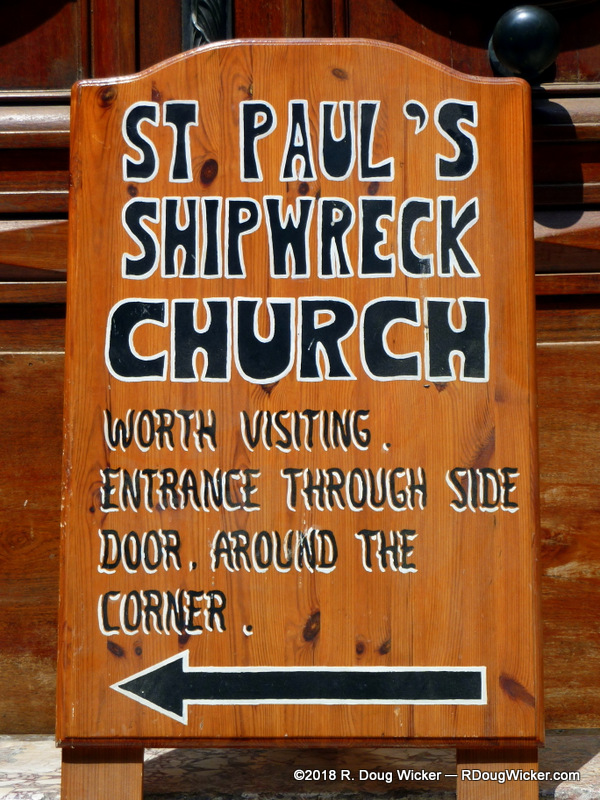 ST PAUL'S
SHIPWRECK
CHURCH
WORTH VISITING.
ENTRANCE THROUGH SIDE
DOOR, AROUND THE
CORNER.
©2018 R. Doug Wicker — RDougWicker.com